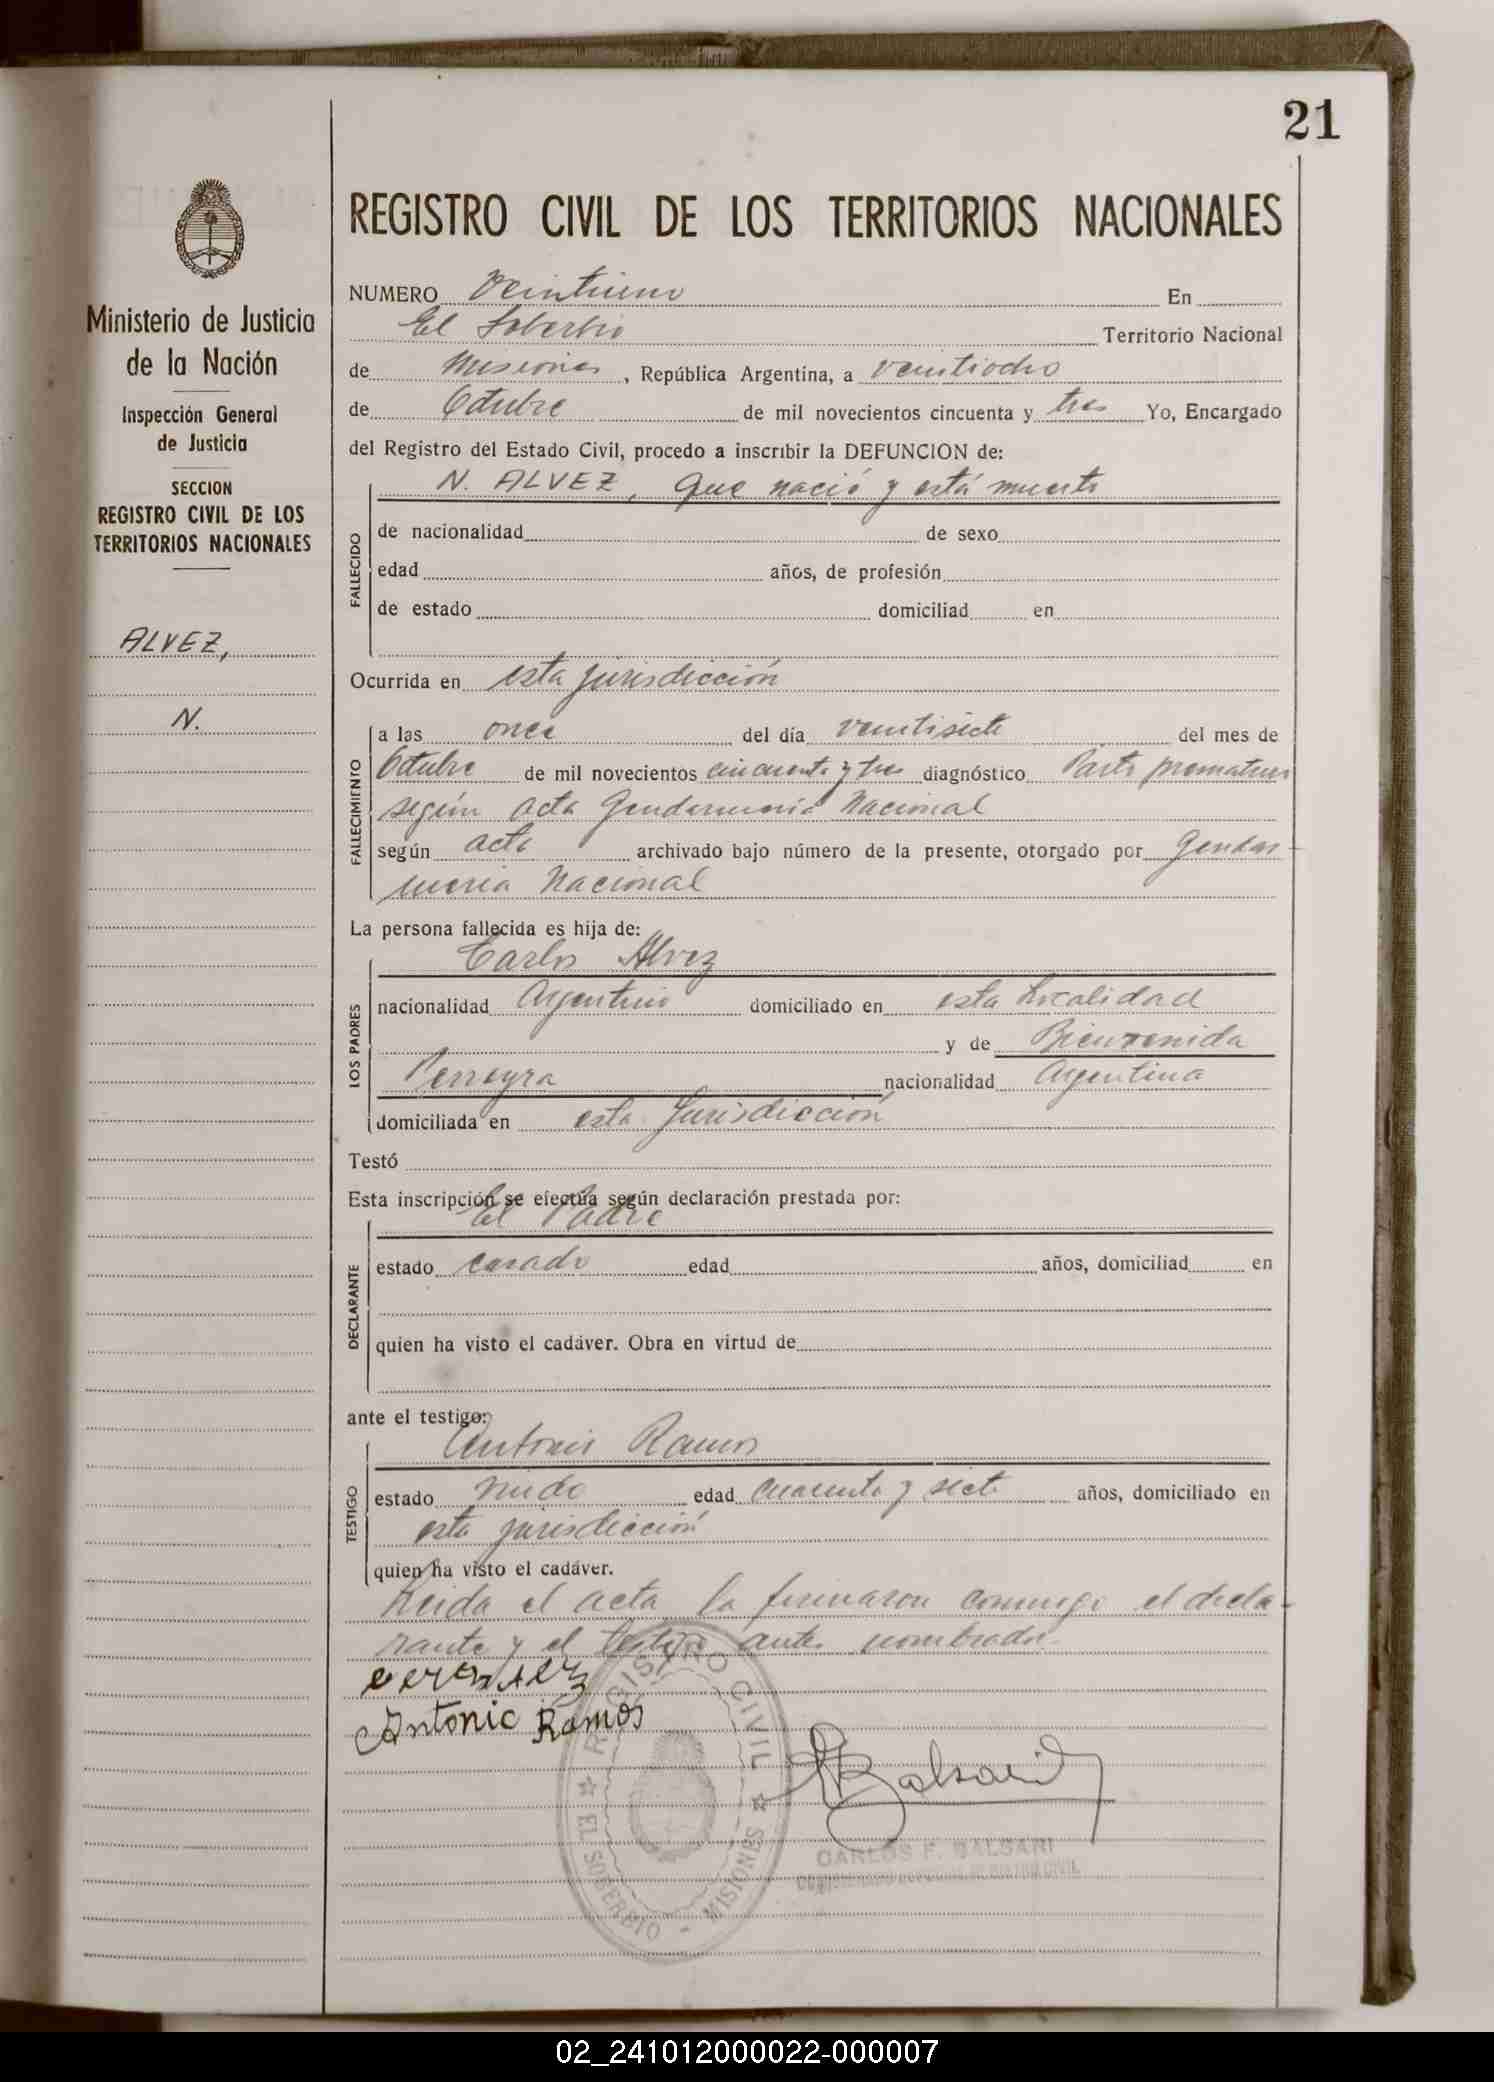 21
Ministerio de Justicia
de la Nación
Inspección General
de Justicia
SECCION
REGISTRO CIVIL DE LOS
TERRITORIOS NACIONALES
ALVEZ,
N.
REGISTRO CIVIL DE LOS TERRITORIOS NACIONALES
NUMERO Veintiuno En
El Soberbio Territorio Nacional
de Misiones, República Argentina, a veintiocho
de Octubre de mil novecientos cincuenta y tres Yo, Encargado
del Registro del Estado Civil, procedo a inscribir la DEFUNCION de:
N. ALVEZ, que nació y está muerto
FALLECIDO
de nacionalidad de sexo
edad años, de profesión
de estado domiciliad en
Ocurrida en esta jurisdicción
FALLECIMIENTO
a las once del día veintisiete del mes de
Octubre de mil novecientos cincuenta y tres diagnóstico Parto prematuro
según acta Gendarmeria Nacional
según acta archivado bajo número de la presente, otorgado por Gendar-
meria Nacional
La persona fallecida es hija de:
LOS PADRES
Carlos Alvez
nacionalidad Argentino domiciliado en esta localidad
y de Bienvenida
Perreyra nacionalidad Argentina
domiciliada en esta Jurisdicción
Testó
Esta inscripción se efectúa según declaración prestada por:
DECLARANTE
El Padre
estado casado edad años, domiciliad en
quien ha visto el cadáver. Obra en virtud de
ante el testigo:
TESTIGO
Antonio Ramos
estado viudo edad cuarenta y siete años, domiciliado en
esta jurisdicción
quien ha visto el cadáver.
Leida el acta la firmaron conmigo el decla-
rante y el testigo antes nombrado.
Antonio Ramos
Balsari
REGISTRO CIVIL
EL SOBERBIO - MISIONES
CARLOS F. BALSARI
02_241012000022-000007